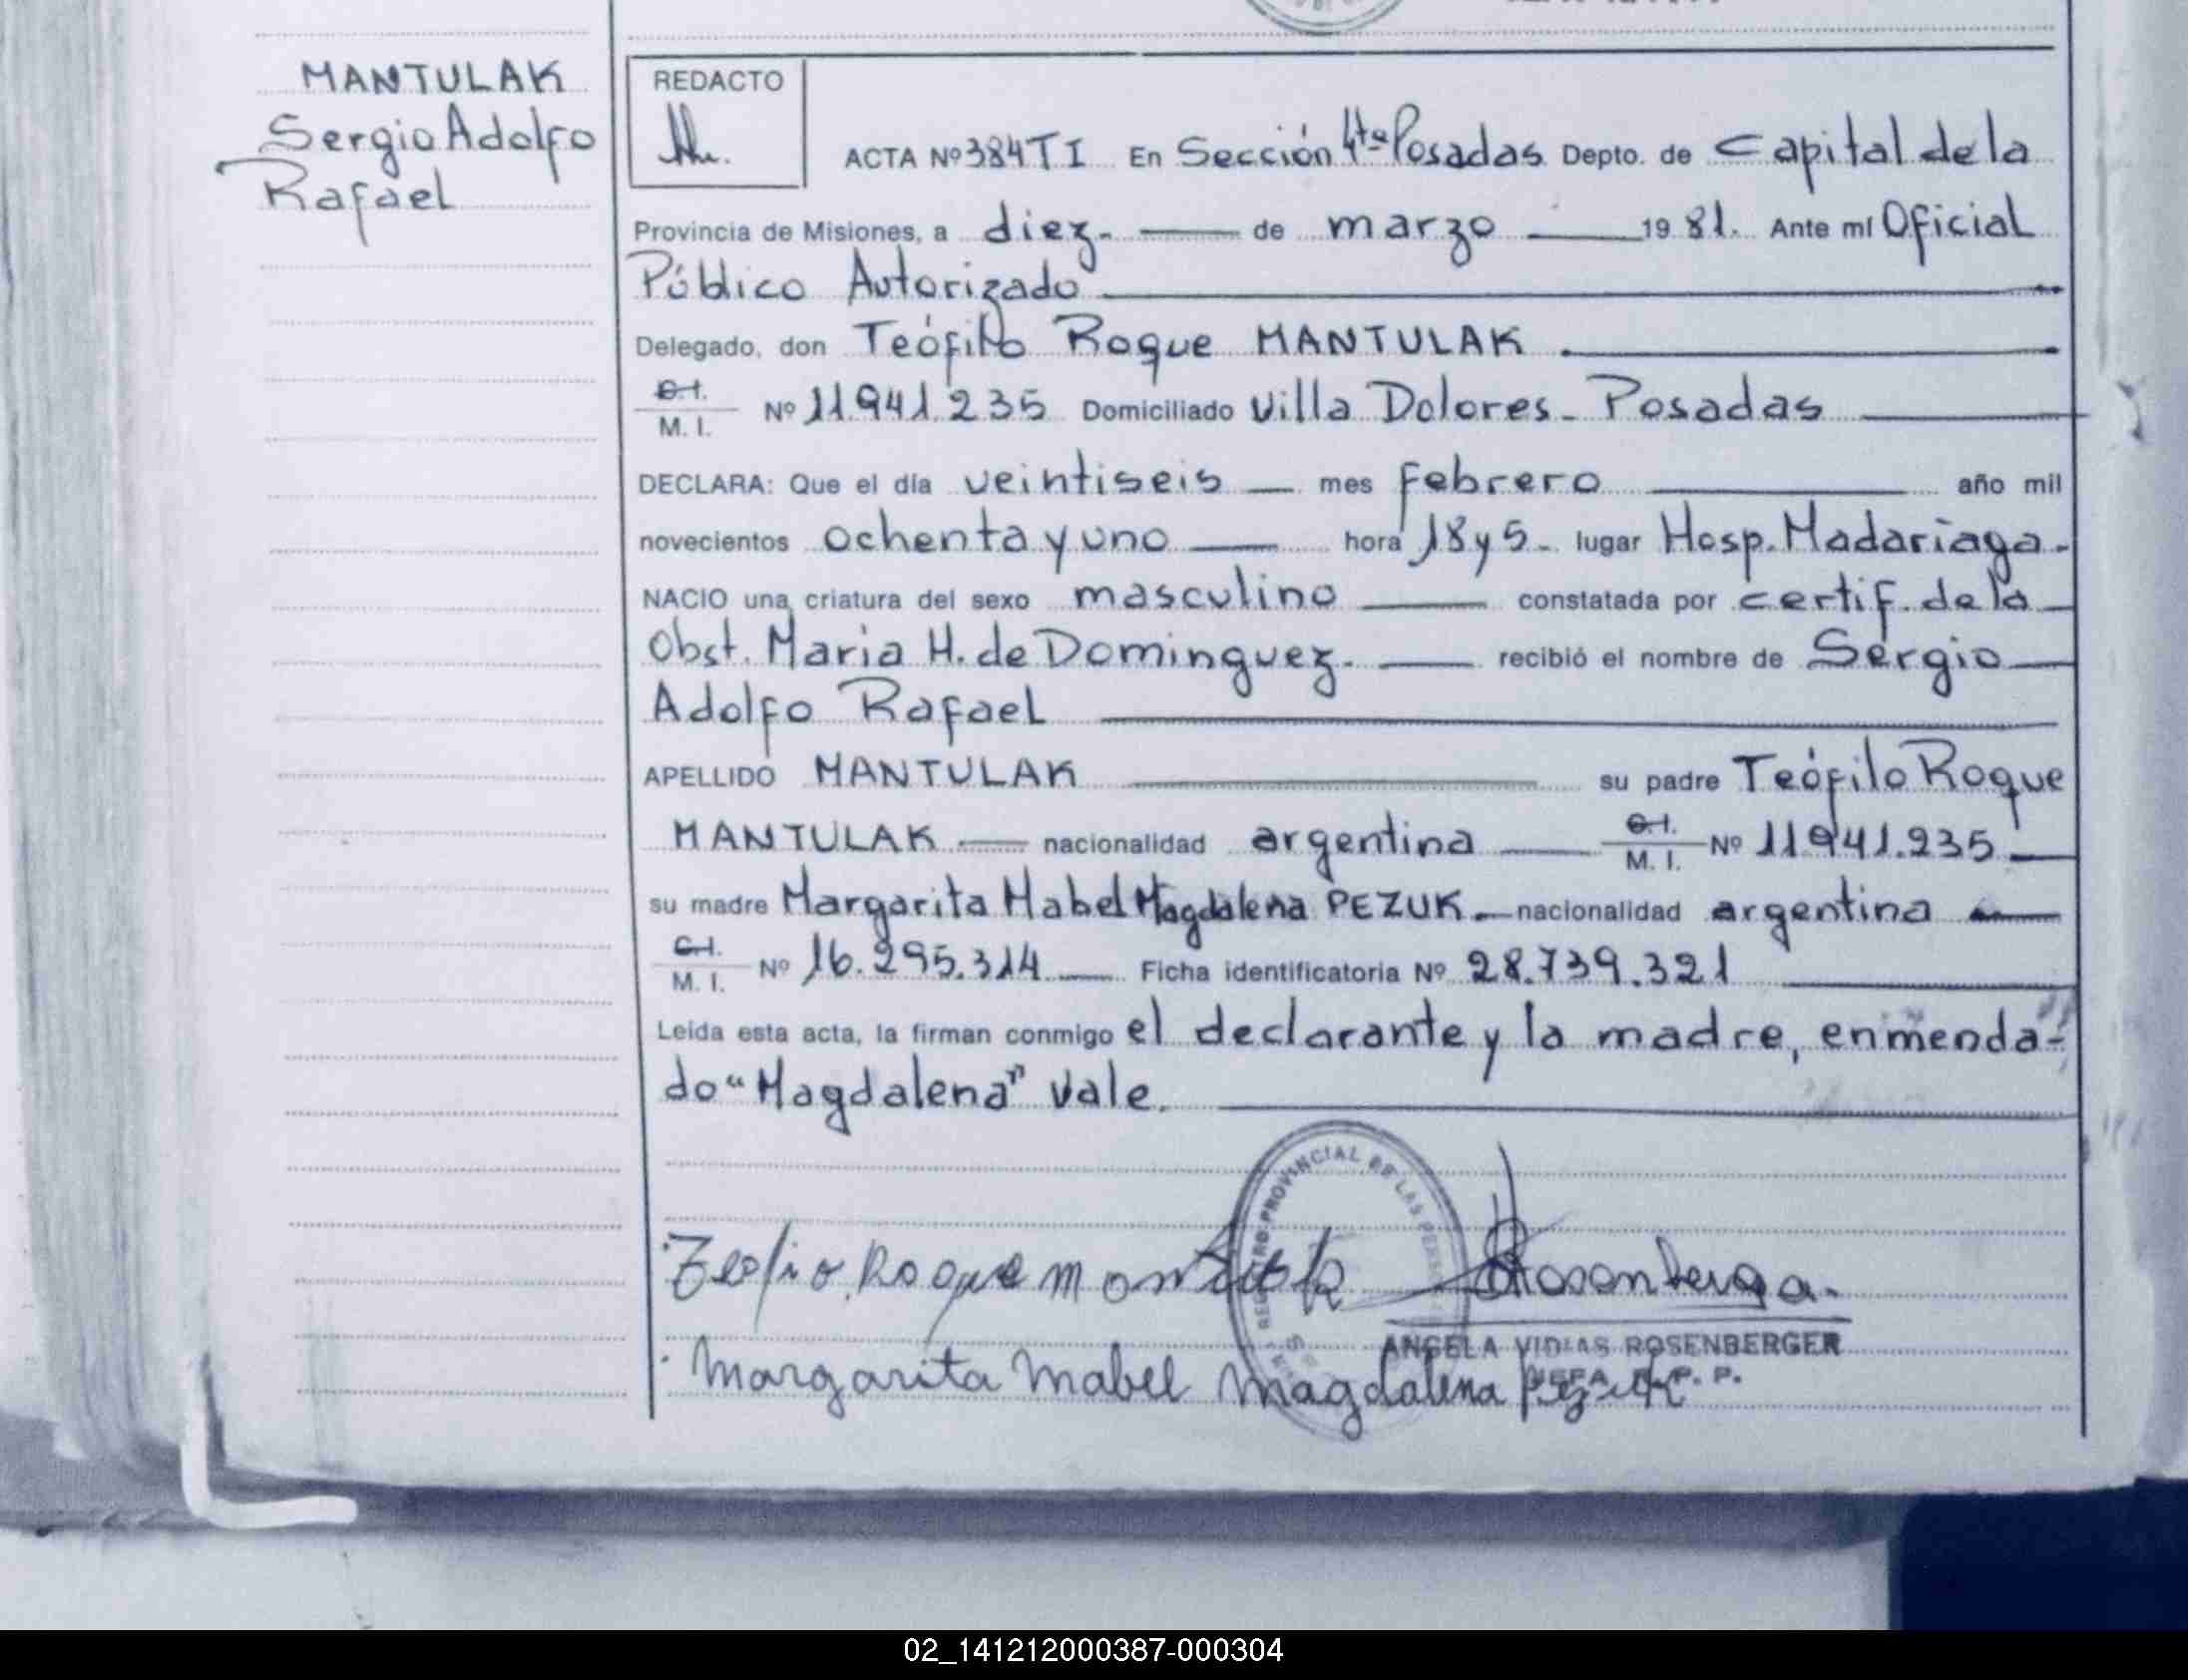 MANTULAK
Sergio Adolfo
Rafael
REDACTO
ACTA Nº 384 T I En Sección 4ta Posadas Depto. de Capital de la
Provincia de Misiones, a diez.— de marzo — 1981. Ante mí Oficial
Público Autorizado
Delegado, don Teófilo Roque MANTULAK
C.I.
M. I. Nº 11.941.235 Domiciliado Villa Dolores - Posadas
DECLARA: Que el día veintiseis — mes febrero — año mil
novecientos ochenta y uno — hora 18 y 5 - lugar Hosp. Madariaga.
NACIO una criatura del sexo masculino — constatada por certif. de la
Obst. Maria H. de Dominguez. — recibió el nombre de Sergio
Adolfo Rafael
APELLIDO MANTULAK su padre Teófilo Roque
MANTULAK — nacionalidad argentina — C.I. M. I. Nº 11.941.235
su madre Margarita Mabel Magdalena PEZUK. — nacionalidad argentina
C.I.
M. I. Nº 16.295.314 — Ficha identificatoria Nº 28.739.321
Leída esta acta, la firman conmigo el declarante y la madre, enmenda-
do "Magdalena" vale.
REGISTRO PROVINCIAL DE LAS
Roque
ANGELA VIDIAS ROSENBERGER
JEFA R. P. P.
Margarita Mabel Magdalena Pezuk
02_141212000387-000304